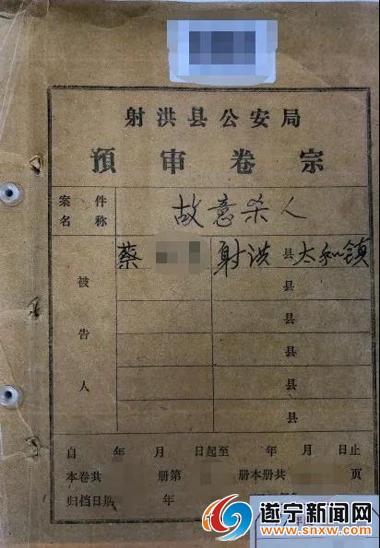 射洪县公安局
预审卷宗
案件名称 故意杀人
被告人 蔡 射洪县太和镇
县
县
县
县
县
自 年 月 日起至 年 月 日止
本卷共 册第 册本册共 页
归档日期 年
遂宁新闻网
www.snxw.com